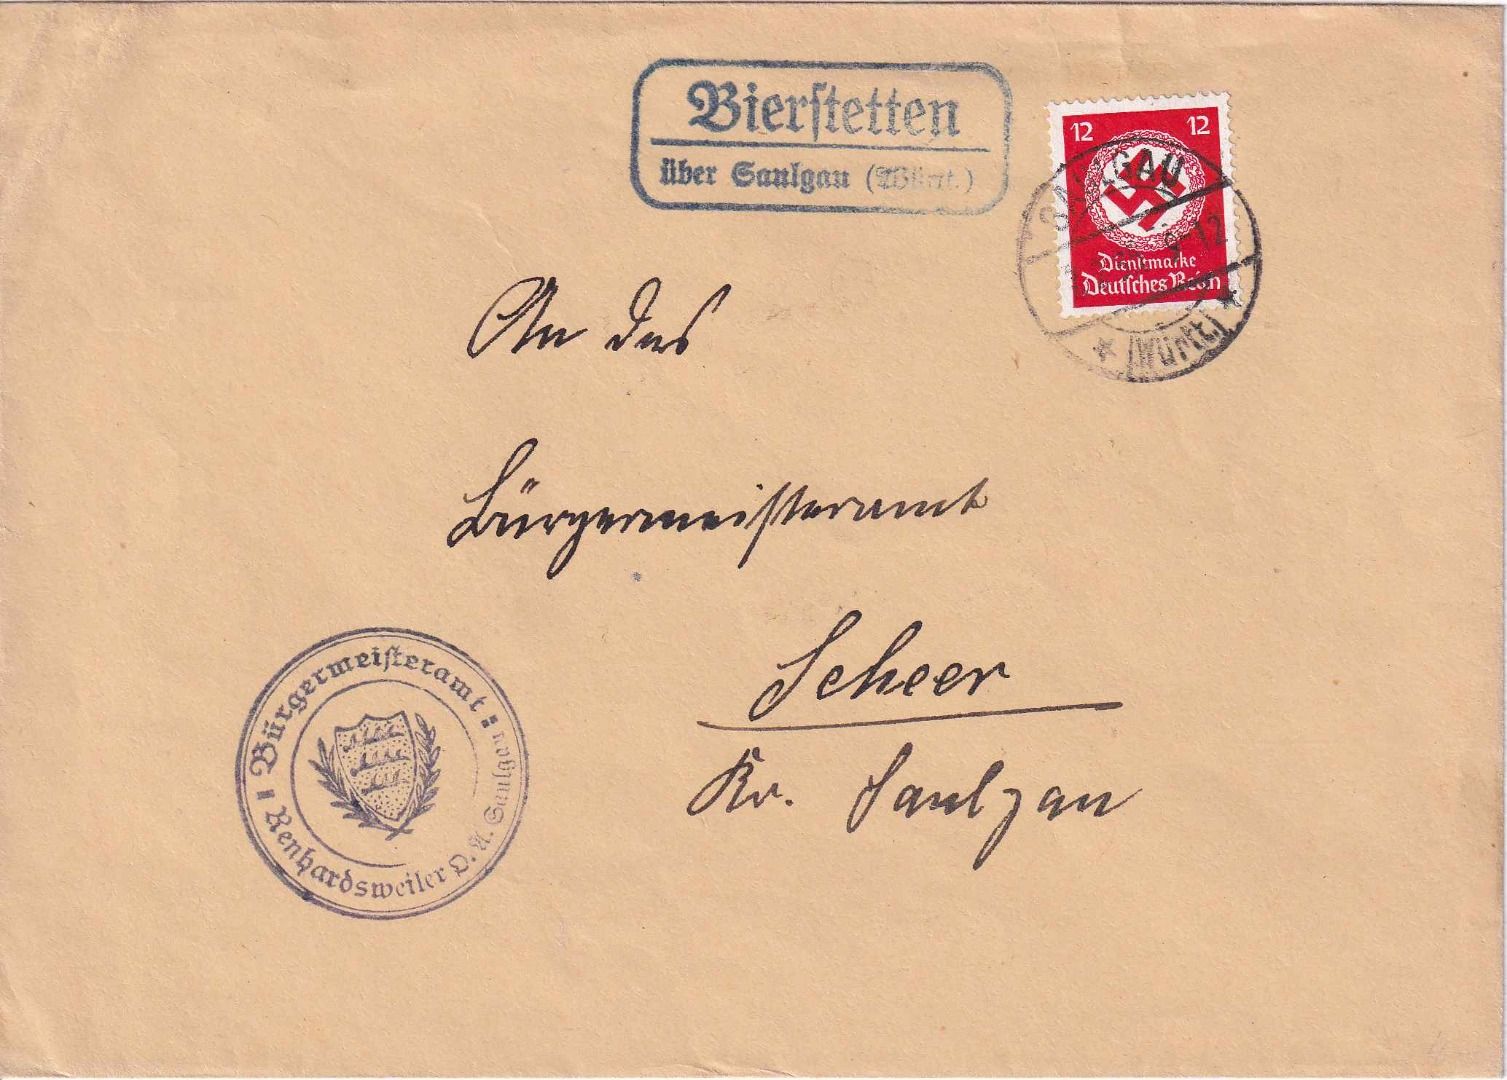 Bierstetten
über Saulgau (Württ.)
12 12
Dienstmarke
Deutsches Reich
SAULGAU
9-12
(Württ.)
An das
Bürgermeisteramt
Scheer
Kr. Saulgau
Bürgermeisteramt
Renhardsweiler O.A. Saulgau